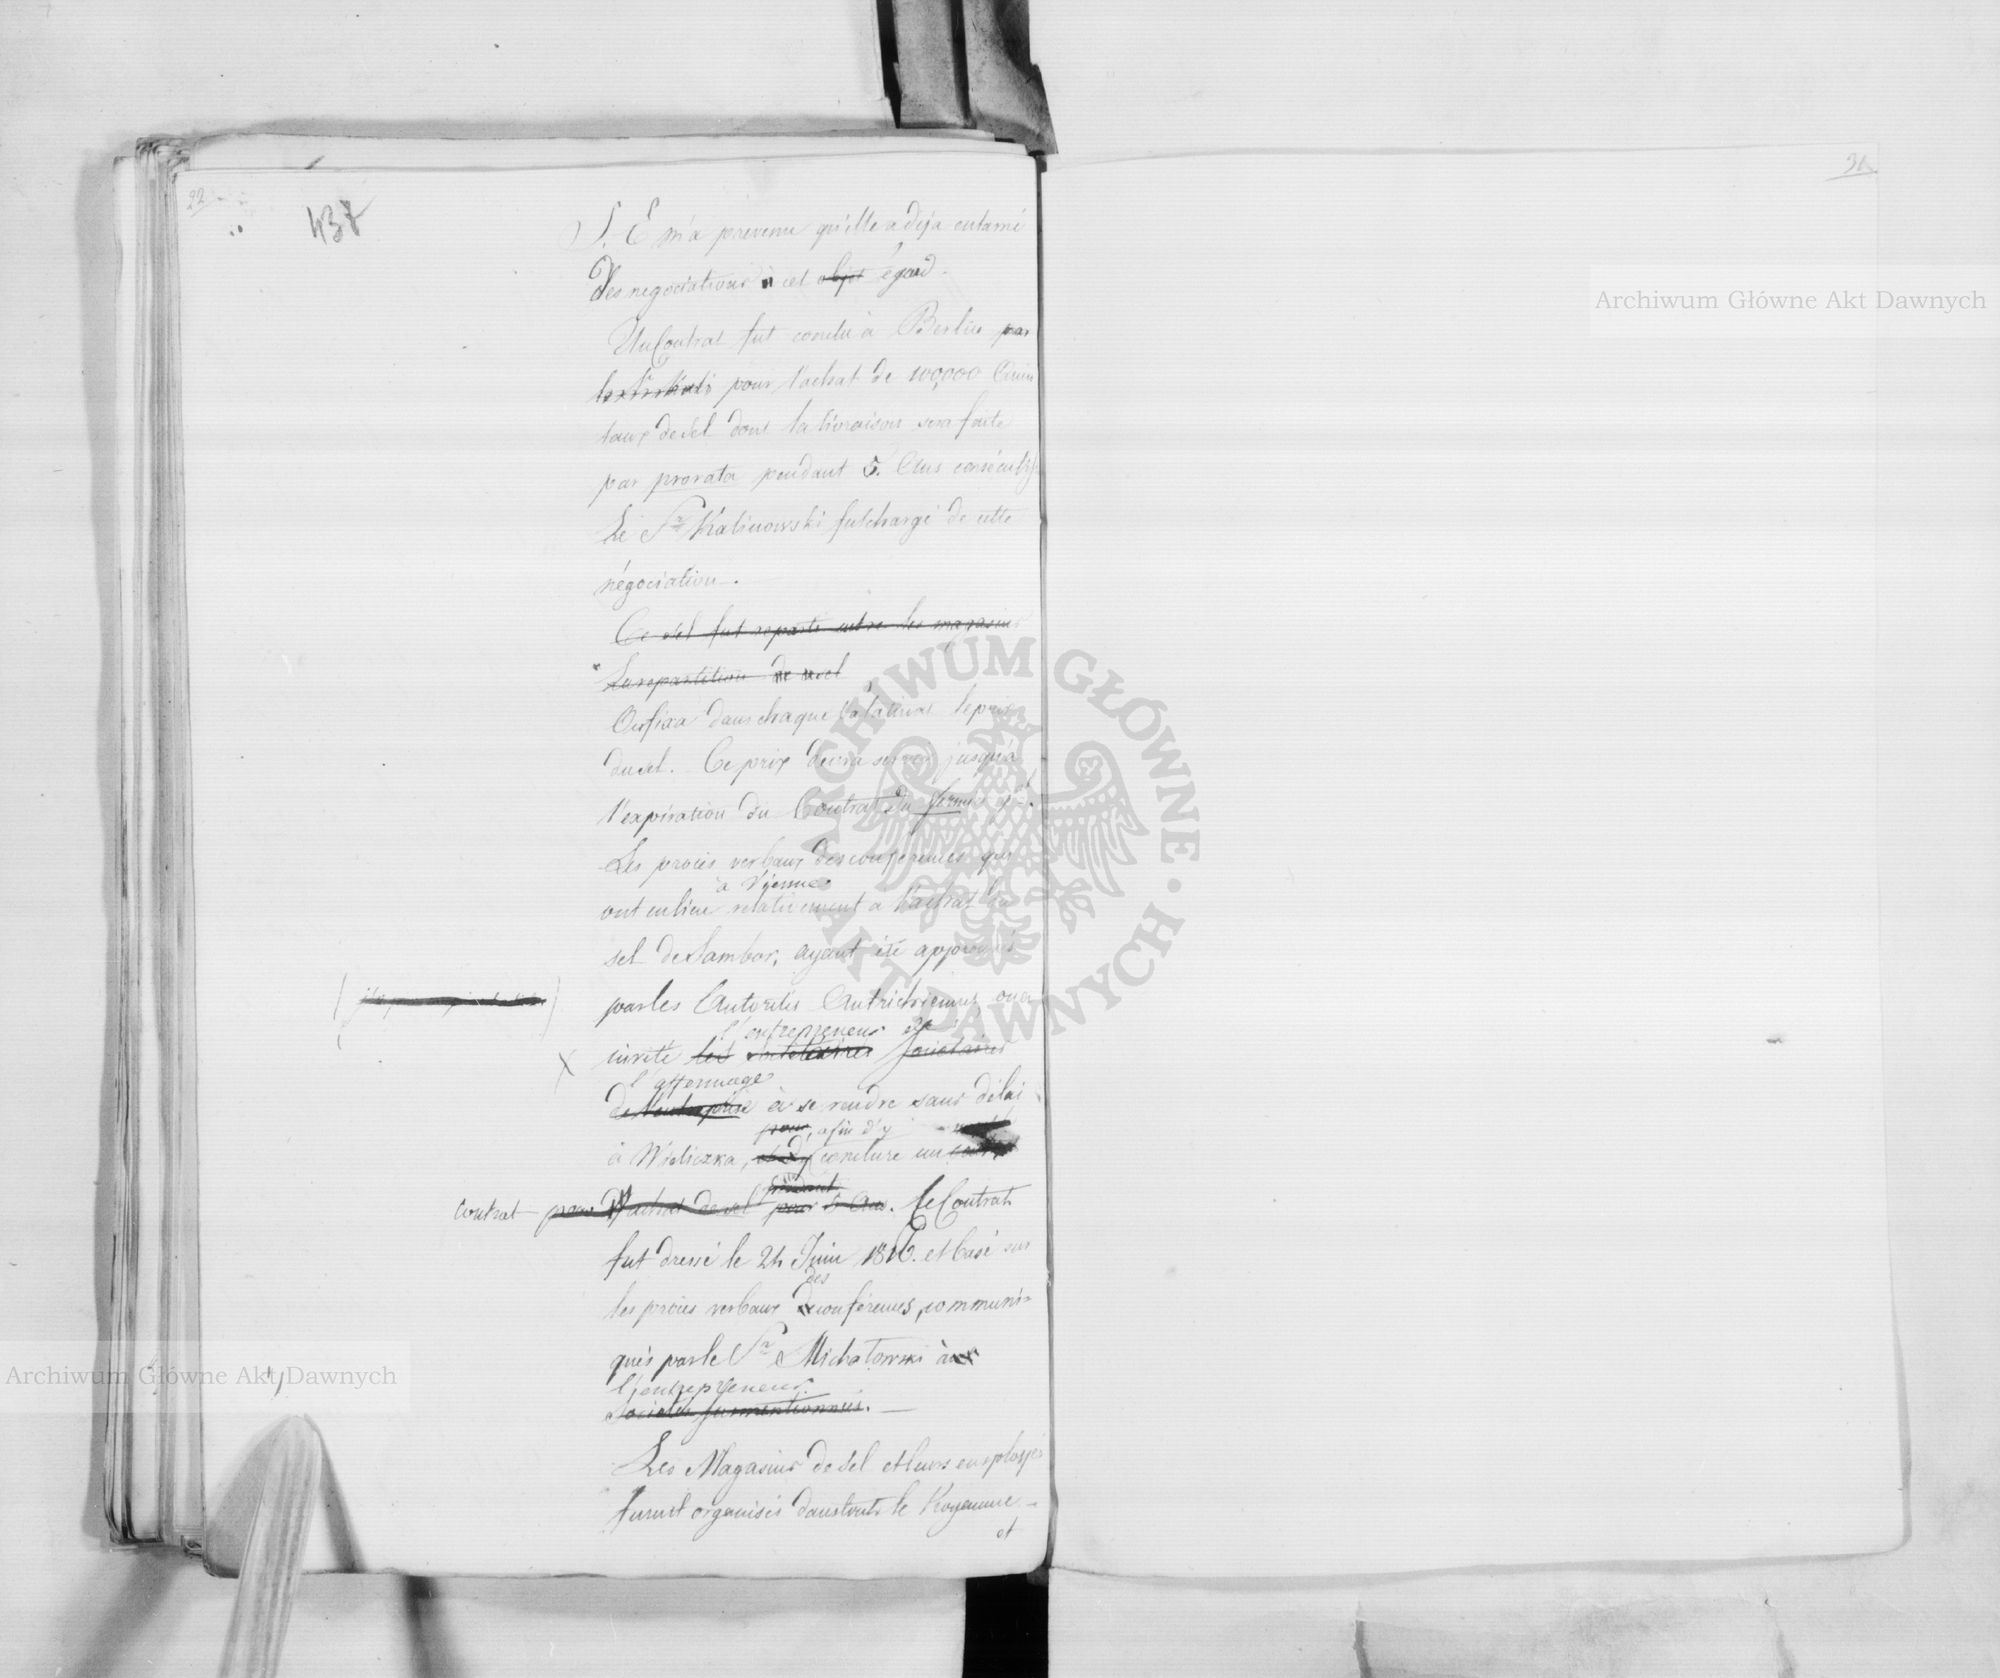 22
437
31
S. E m'a prevenu qu'elle a deja entamé
des negociations à cet objet égard.
Un Contrat fut conclu à Berlin par
pour l'achat de 100,000 Quin
taux de sel dont la livraison sera faite
par prorata pendant 5. Ans consécutifs
Le Sr Kalinowski fut chargé de cette
négociation.
Ce sel fut reparti entre les magasins
La repartition de ce sel
On fixa dans chaque Palatinat le prix
du sel. Ce prix devra servir jusqu'à
l'expiration du Contrat du ferme
Les procès verbaux des conferences qui
à Vienne
ont eu lieu relativement a l'achat du
sel de Sambor, ayant été approuvés
par les Autorités Autrichiennes, on a
l'entrepreneur de
invité les Societaires
l'affermage
de l'entreprise à se rendre sans délai
pour, afin d'y
à Wieliczka, et d'y conclure un
pendant
contrat pour l'achat de sel pour 5 Ans. Ce Contrat
fut dressé le 24 Juin 1816. et basé sur
des
les procès verbaux de conférences, communi-
qués par le Sr Michałowski à
l'entrepreneur.
Societés surmentionnés.
Les Magasins de sel et leurs employés
furent organisés dans tout le Royaume
et
Archiwum Główne Akt Dawnych
Archiwum Główne Akt Dawnych
ARCHIWUM GŁÓWNE AKT DAWNYCH